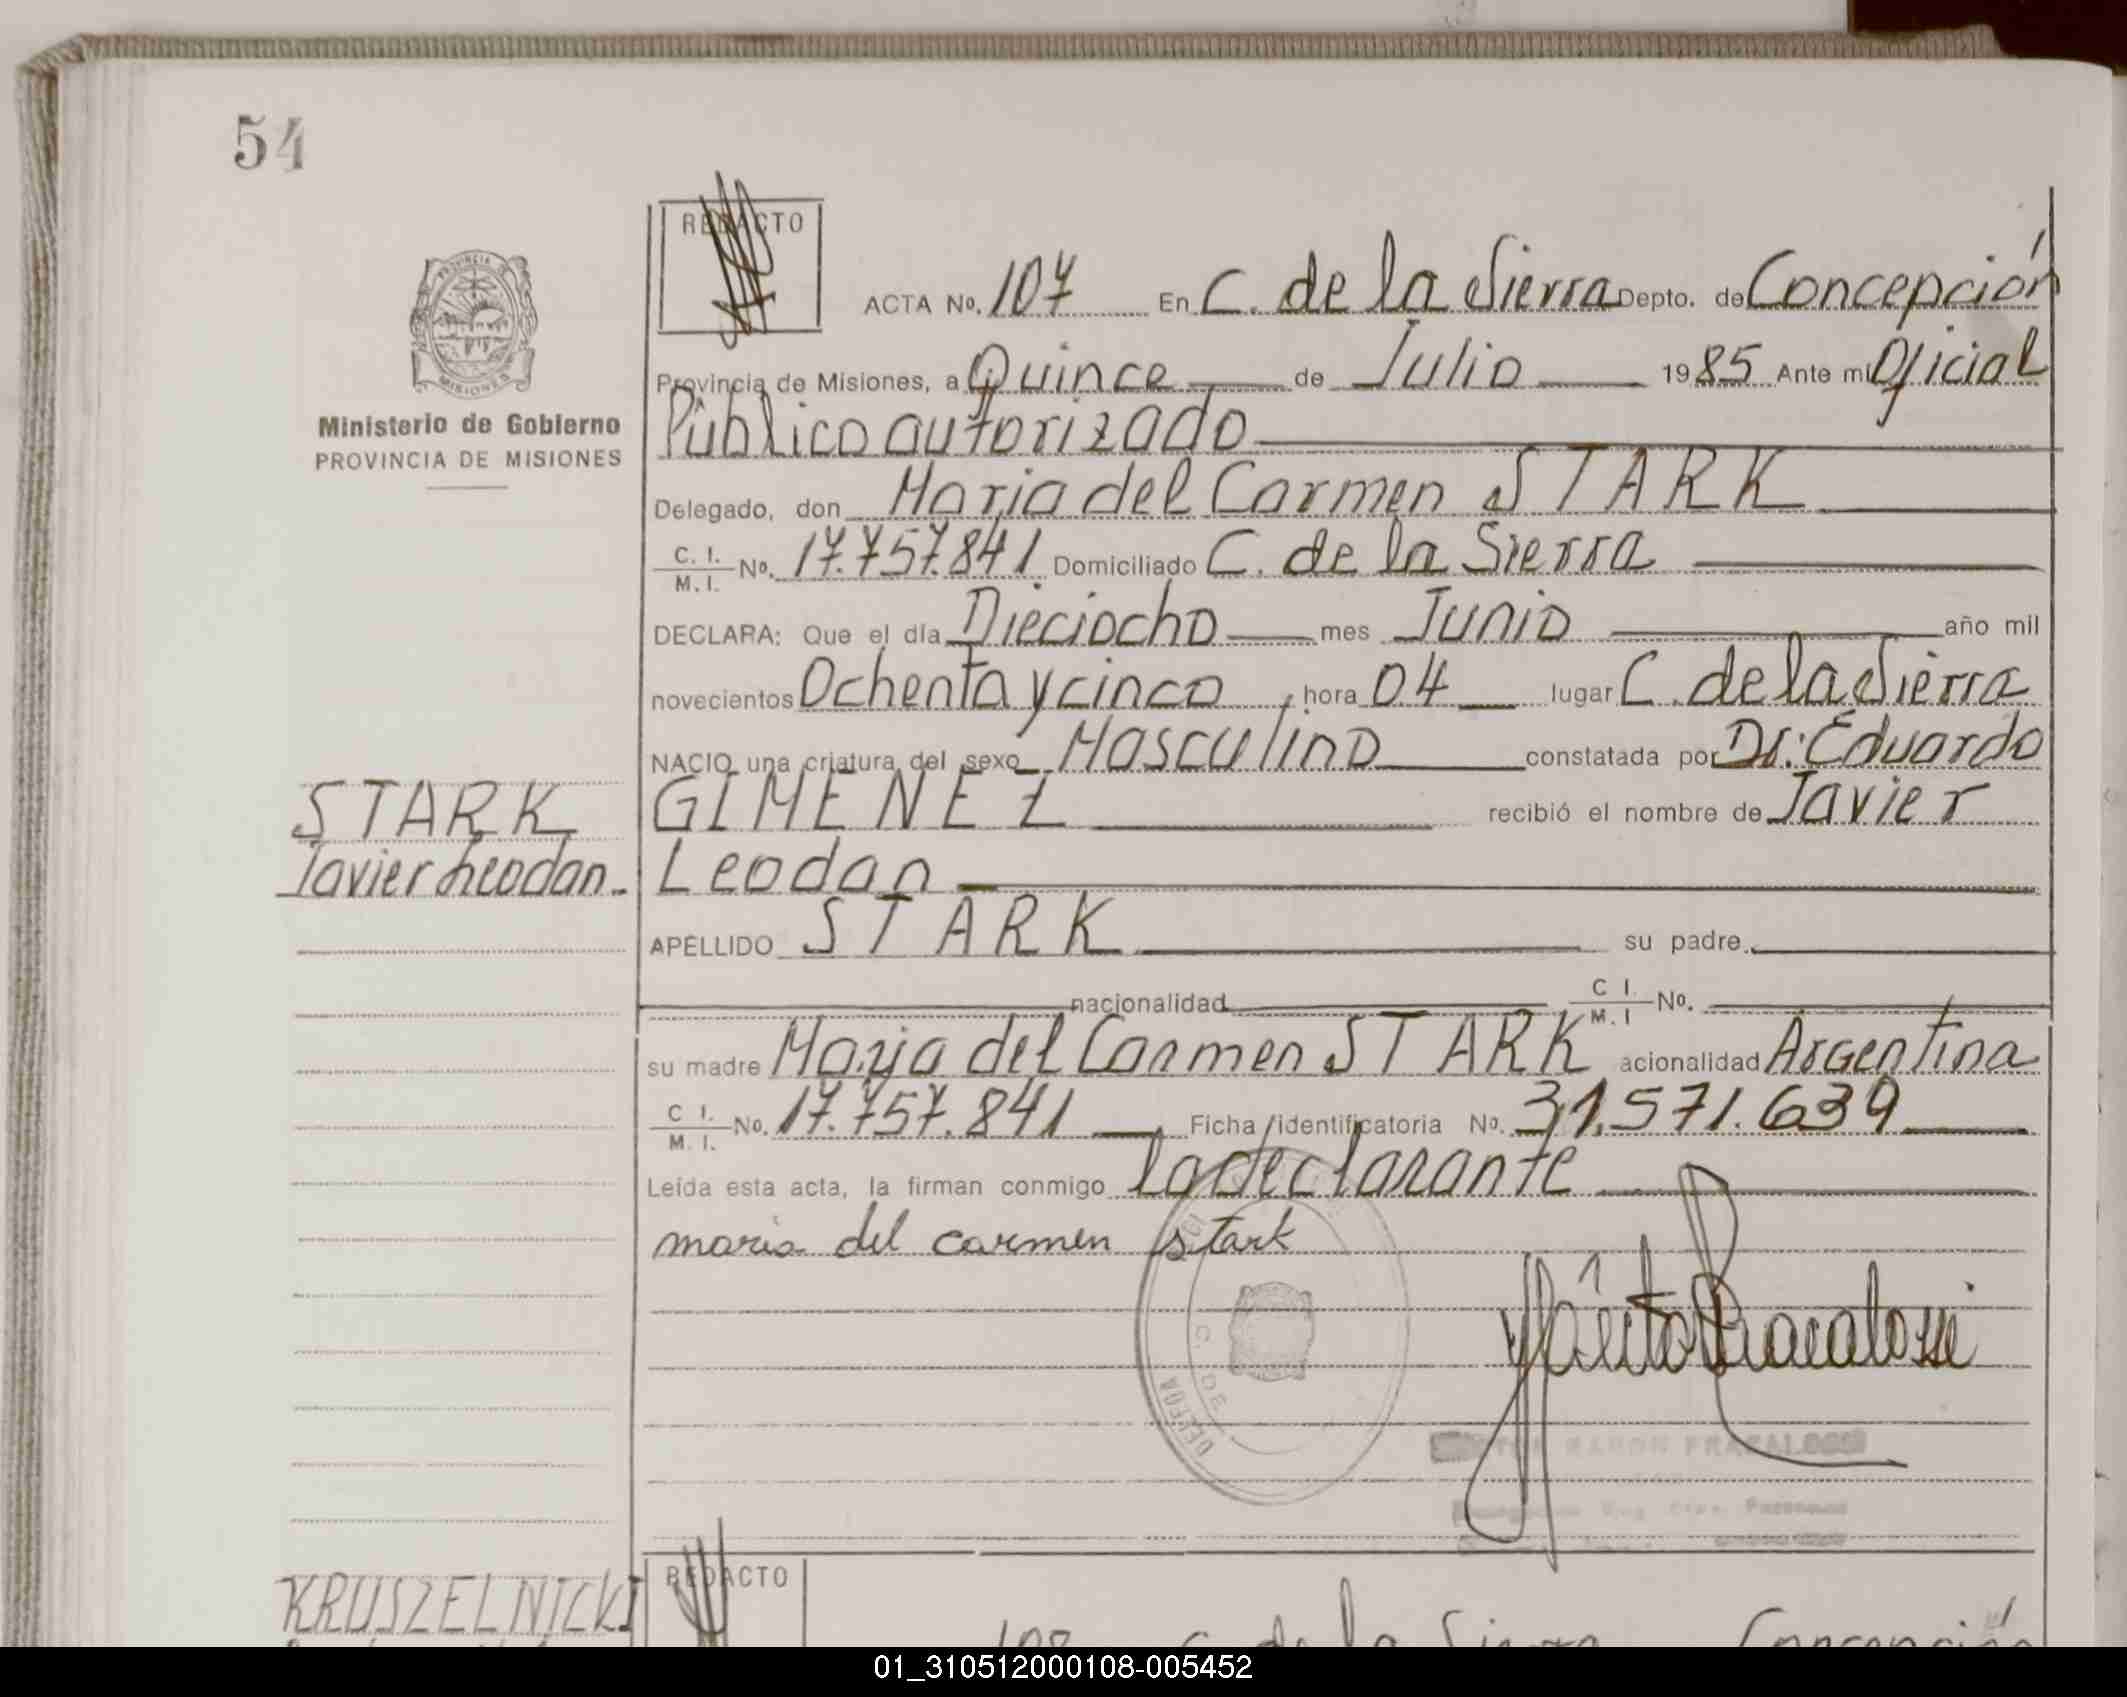 54
REDACTO
ACTA No. 107 En C. de la Sierra Depto. de Concepción
Provincia de Misiones, a Quince de Julio 1985 Ante mi Oficial
Público autorizado
Ministerio de Gobierno
PROVINCIA DE MISIONES
Delegado, don Maria del Carmen STARK
C. I. / M. I. No. 17.757.841 Domiciliado C. de la Sierra
DECLARA: Que el día Dieciocho mes Junio año mil
novecientos Ochenta y cinco, hora 04 lugar C. de la Sierra
NACIO una criatura del sexo Masculino constatada por Dr: Eduardo
GIMENEZ recibió el nombre de Javier
STARK
Javier Leodan.
Leodan
APELLIDO STARK su padre
nacionalidad C I. / M. I No.
su madre Maria del Carmen STARK acionalidad Argentina
C I. / M. I. No. 17.757.841 Ficha identificatoria No. 31.571.639
Leída esta acta, la firman conmigo la declarante
maria del carmen stark
KRUSZELNICKI
REDACTO
108 C. de la Sierra Concepción
01_310512000108-005452